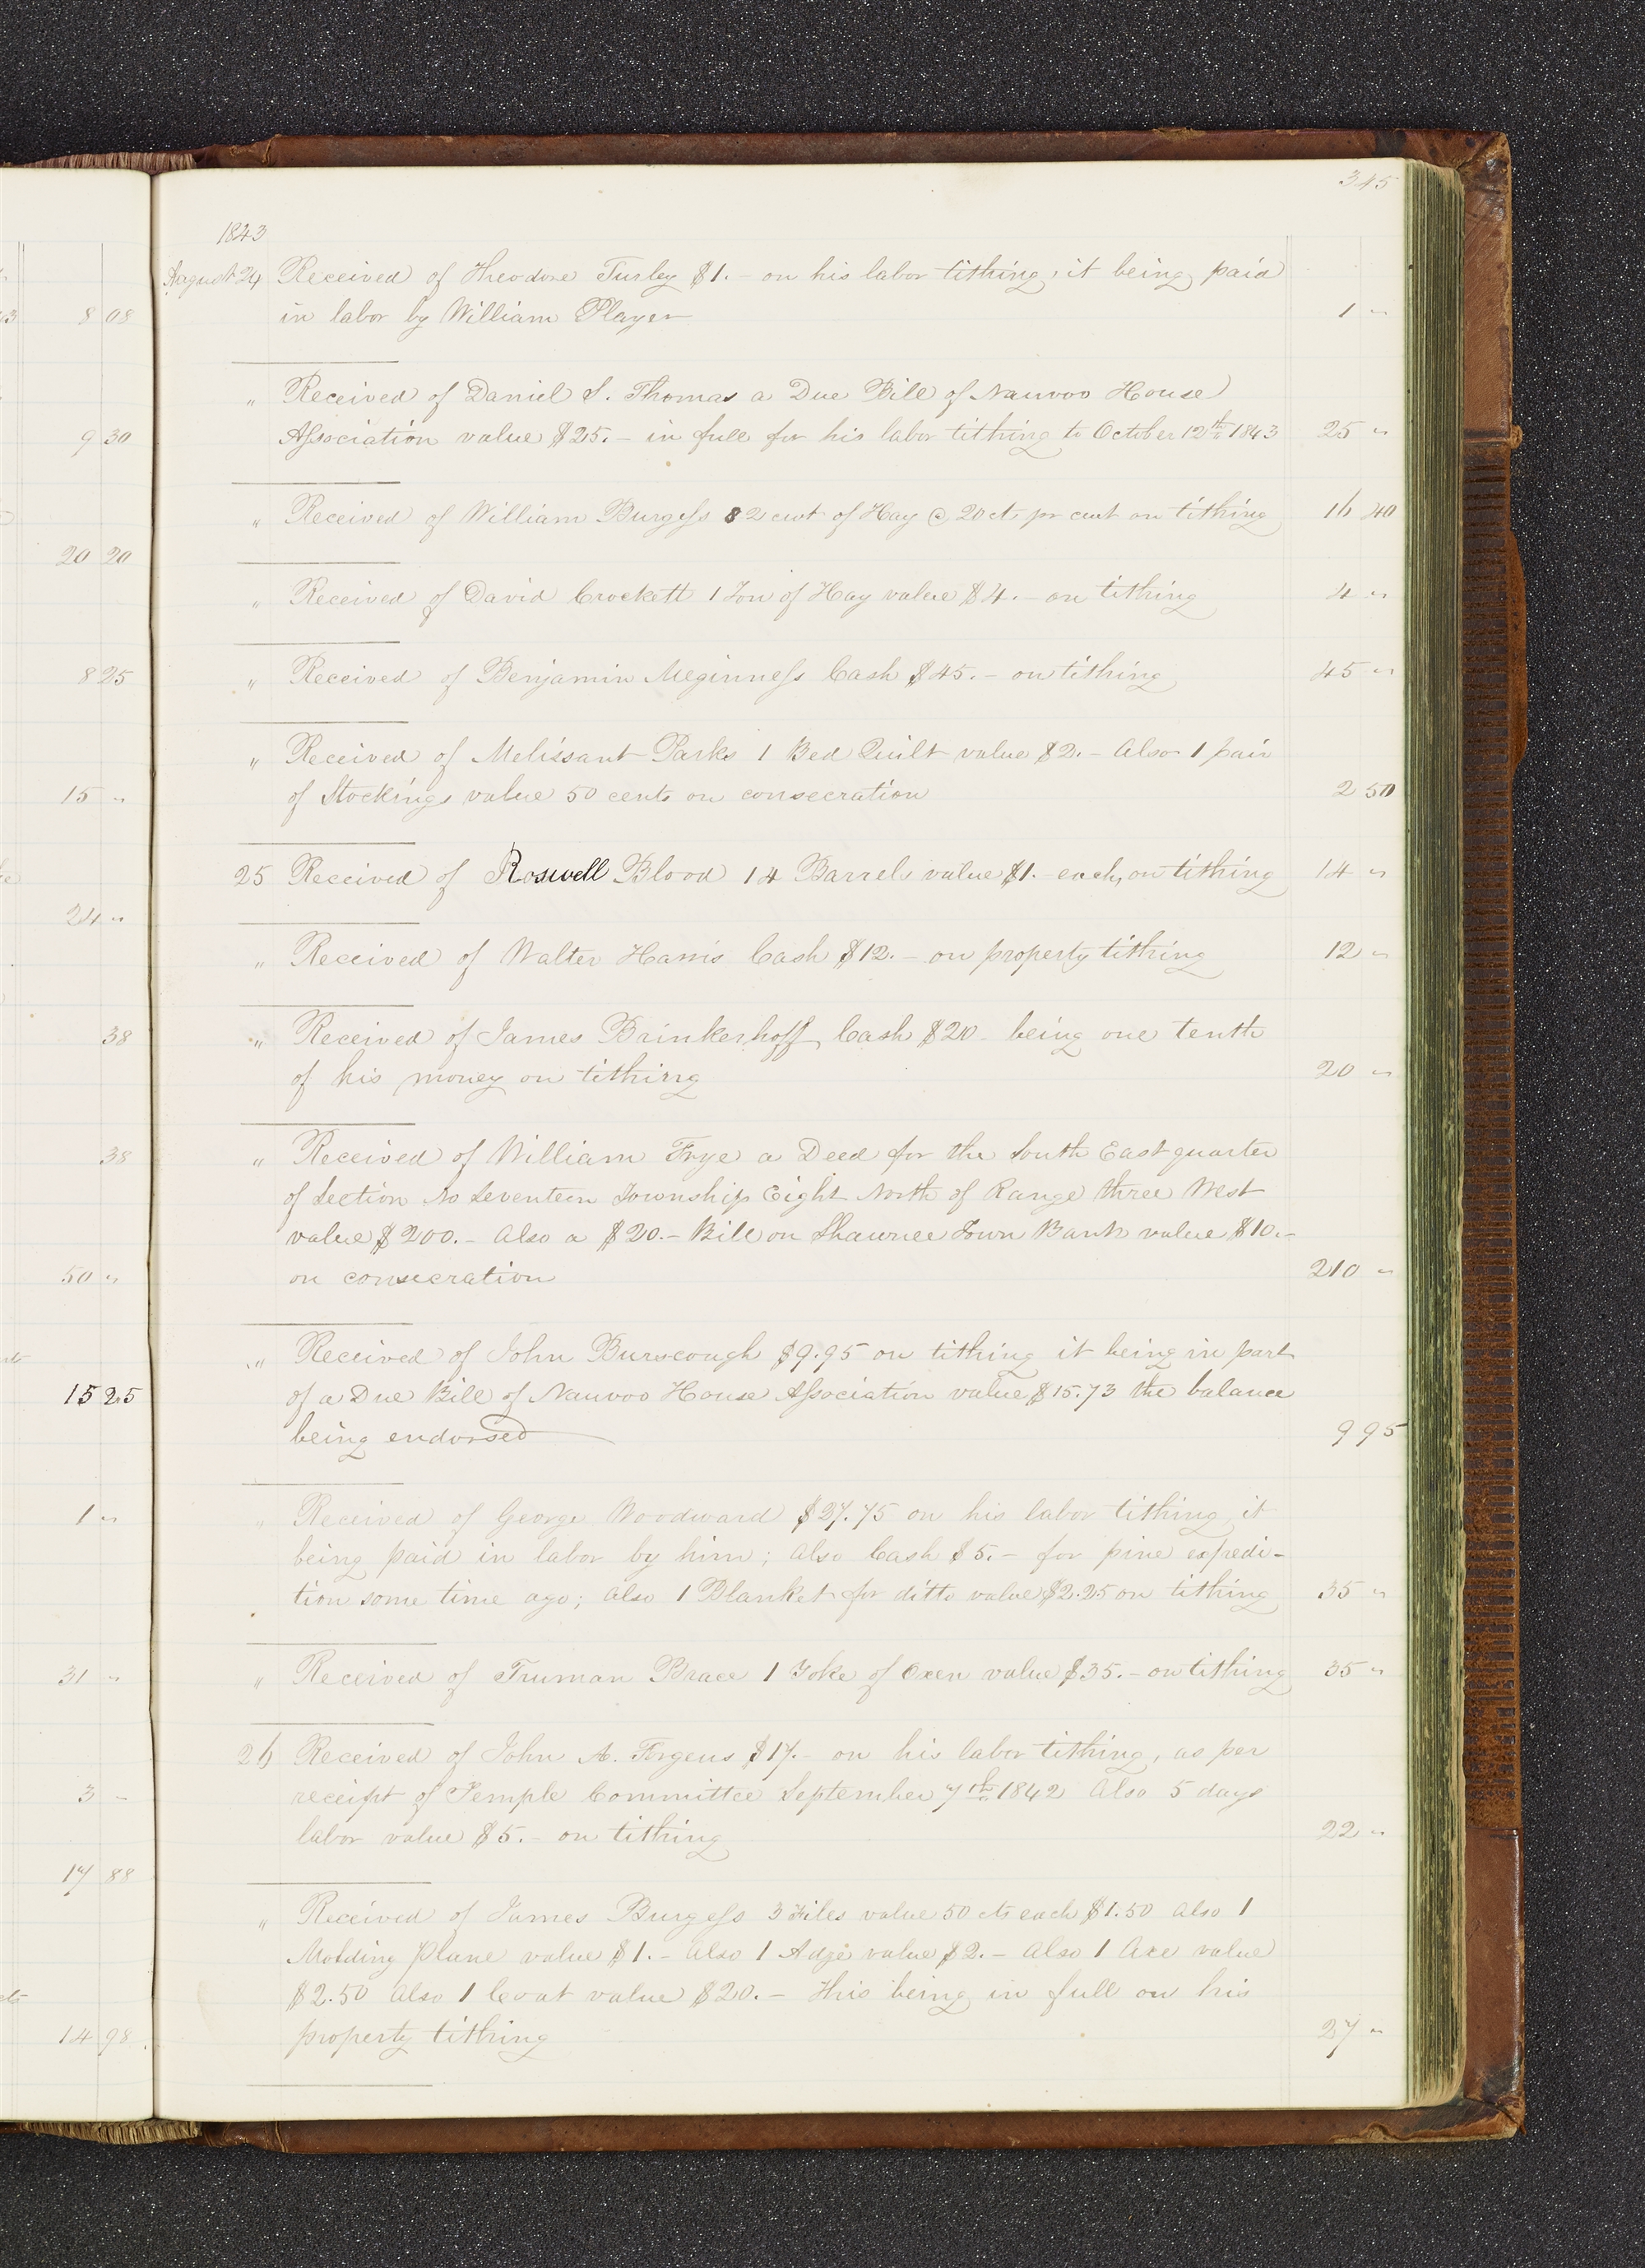 345
1843
August 24 Received of Theodore Turley $1.- on his labor tithing, it being paid
in labor by William Player 1 "
" Received of Daniel S. Thomas a Due Bill of Nauvoo House
Association value $25.- in full for his labor tithing to October 12th 1843 25 "
" Received of William Burgess 82 cwt of Hay @ 20 cts pr cwt on tithing 16 40
" Received of David Crockett 1 Ton of Hay value $4.- on tithing 4 "
" Received of Benjamin Meginness Cash $45.- on tithing 45 "
" Received of Melissant Parks 1 Bed Quilt value $2.- Also 1 pair
of Stockings value 50 cents on consecration 2 50
25 Received of Roswell Blood 14 Barrels value $1.- each, on tithing 14 "
" Received of Walter Harris Cash $12.- on property tithing 12 "
" Received of James Brinkerhoff, Cash $20- being one tenth
of his money on tithing 20 "
" Received of William Frye a Deed for the South East quarter
of Section No Seventeen Township Eight North of Range three West
value $200.- Also a $20.- Bill on Shawnee Town Bank value $10.-
on consecration 210 "
" Received of John Burscough $9.95 on tithing it being in part
of a Due Bill of Nauvoo House Association value $15.73 the balance
being endorsed 9 95
" Received of George Woodward $27.75 on his labor tithing, it
being paid in labor by him; Also Cash $5.- for pine expedi-
tion some time ago; Also 1 Blanket for ditto value $2.25 on tithing 35 "
" Received of Truman Brace 1 Yoke of Oxen value $35.- on tithing 35 "
26 Received of John A. Forgeus $17.- on his labor tithing, as per
receipt of Temple Committee September 7th 1842 Also 5 days
labor value $5.- on tithing 22 "
" Received of James Burgess 3 Files value 50 cts each $1.50 Also 1
Molding Plane value $1.- Also 1 Adze value $2.- Also 1 Axe value
$2.50 Also 1 Coat value $20.- This being in full on his
property tithing 27 "
8 08
9 30
20 20
8 25
15 "
24 "
38
38
50 "
15 25
1 "
31 "
3 -
17 88
14 98